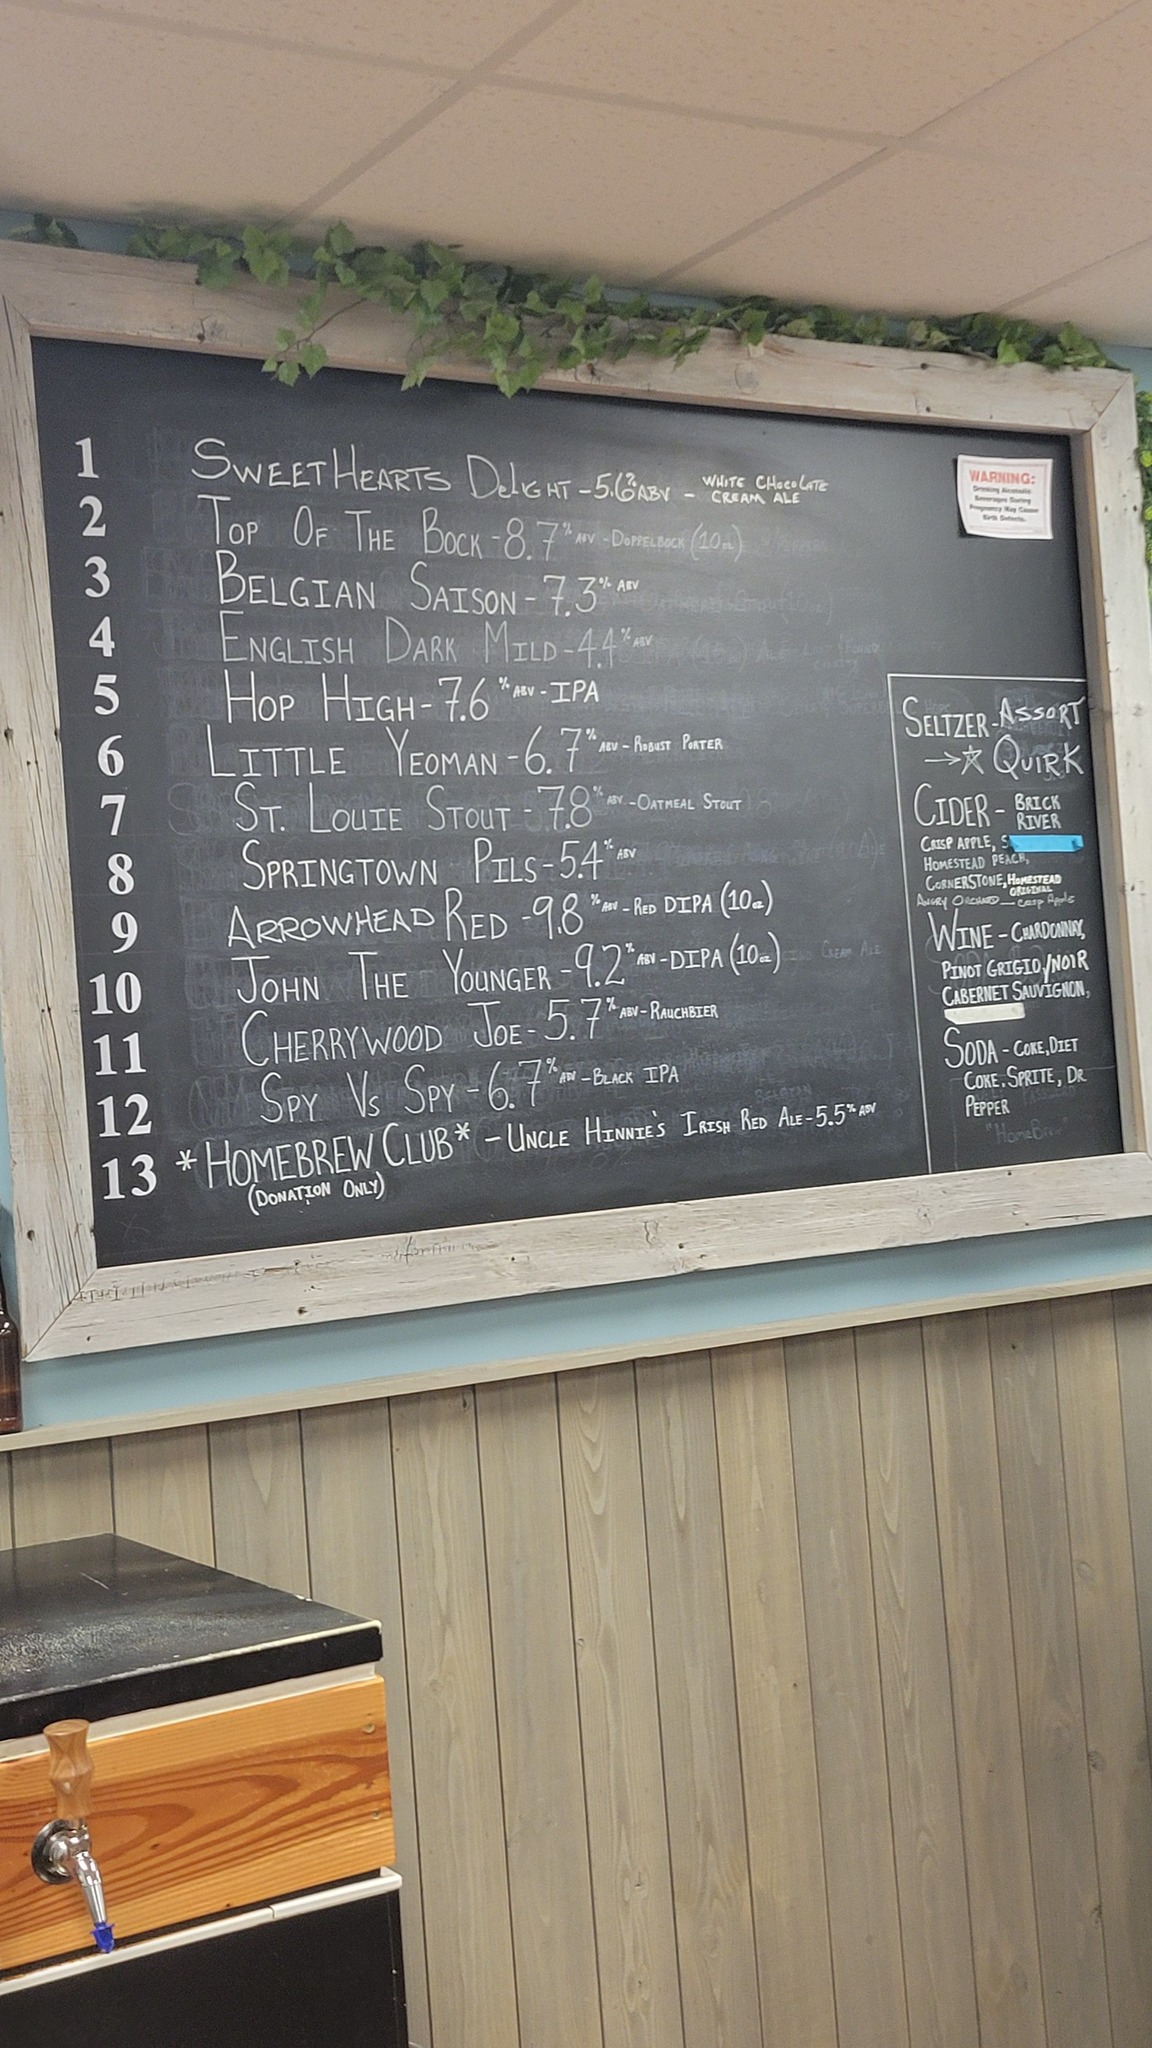 1 SWEETHEARTS DELIGHT - 5.6% ABV - WHITE CHOCOLATE CREAM ALE
2 TOP OF THE BOCK - 8.7% ABV - DOPPELBOCK (10oz)
3 BELGIAN SAISON - 7.3% ABV
4 ENGLISH DARK MILD - 4.4% ABV
5 HOP HIGH - 7.6% ABV - IPA
6 LITTLE YEOMAN - 6.7% ABV - ROBUST PORTER
7 ST. LOUIE STOUT - 7.8% ABV - OATMEAL STOUT
8 SPRINGTOWN PILS - 5.4% ABV
9 ARROWHEAD RED - 9.8% ABV - RED DIPA (10oz)
10 JOHN THE YOUNGER - 9.2% ABV - DIPA (10oz)
11 CHERRYWOOD JOE - 5.7% ABV - RAUCHBIER
12 SPY VS SPY - 6.7% ABV - BLACK IPA
13 *HOMEBREW CLUB* - UNCLE HINNIE'S IRISH RED ALE - 5.5% ABV
(DONATION ONLY)
WARNING:
Drinking Alcoholic
Beverages During
Pregnancy May Cause
Birth Defects.
SELTZER - ASSORT
→☆ QUIRK
CIDER - BRICK
RIVER
CRISP APPLE,
HOMESTEAD PEACH,
CORNERSTONE, HOMESTEAD
ORIGINAL
ANGRY ORCHARD — CRISP APPLE
WINE - CHARDONNAY,
PINOT GRIGIO/NOIR
CABERNET SAUVIGNON,
SODA - COKE, DIET
COKE, SPRITE, DR
PEPPER